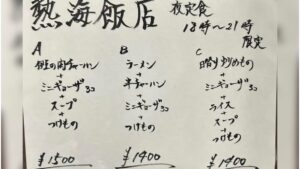 熱海飯店 夜定食
18時〜21時
限定
A
豚の角チャーハン
+
ミニギョーザ3コ
+
スープ
+
つけもの
¥1500
B
ラーメン
+
半チャーハン
+
ミニギョーザ3コ
+
つけもの
¥1400
C
日替り炒めもの
+
ミニギョーザ3コ
+
ライス
+
スープ
+
つけもの
¥1400